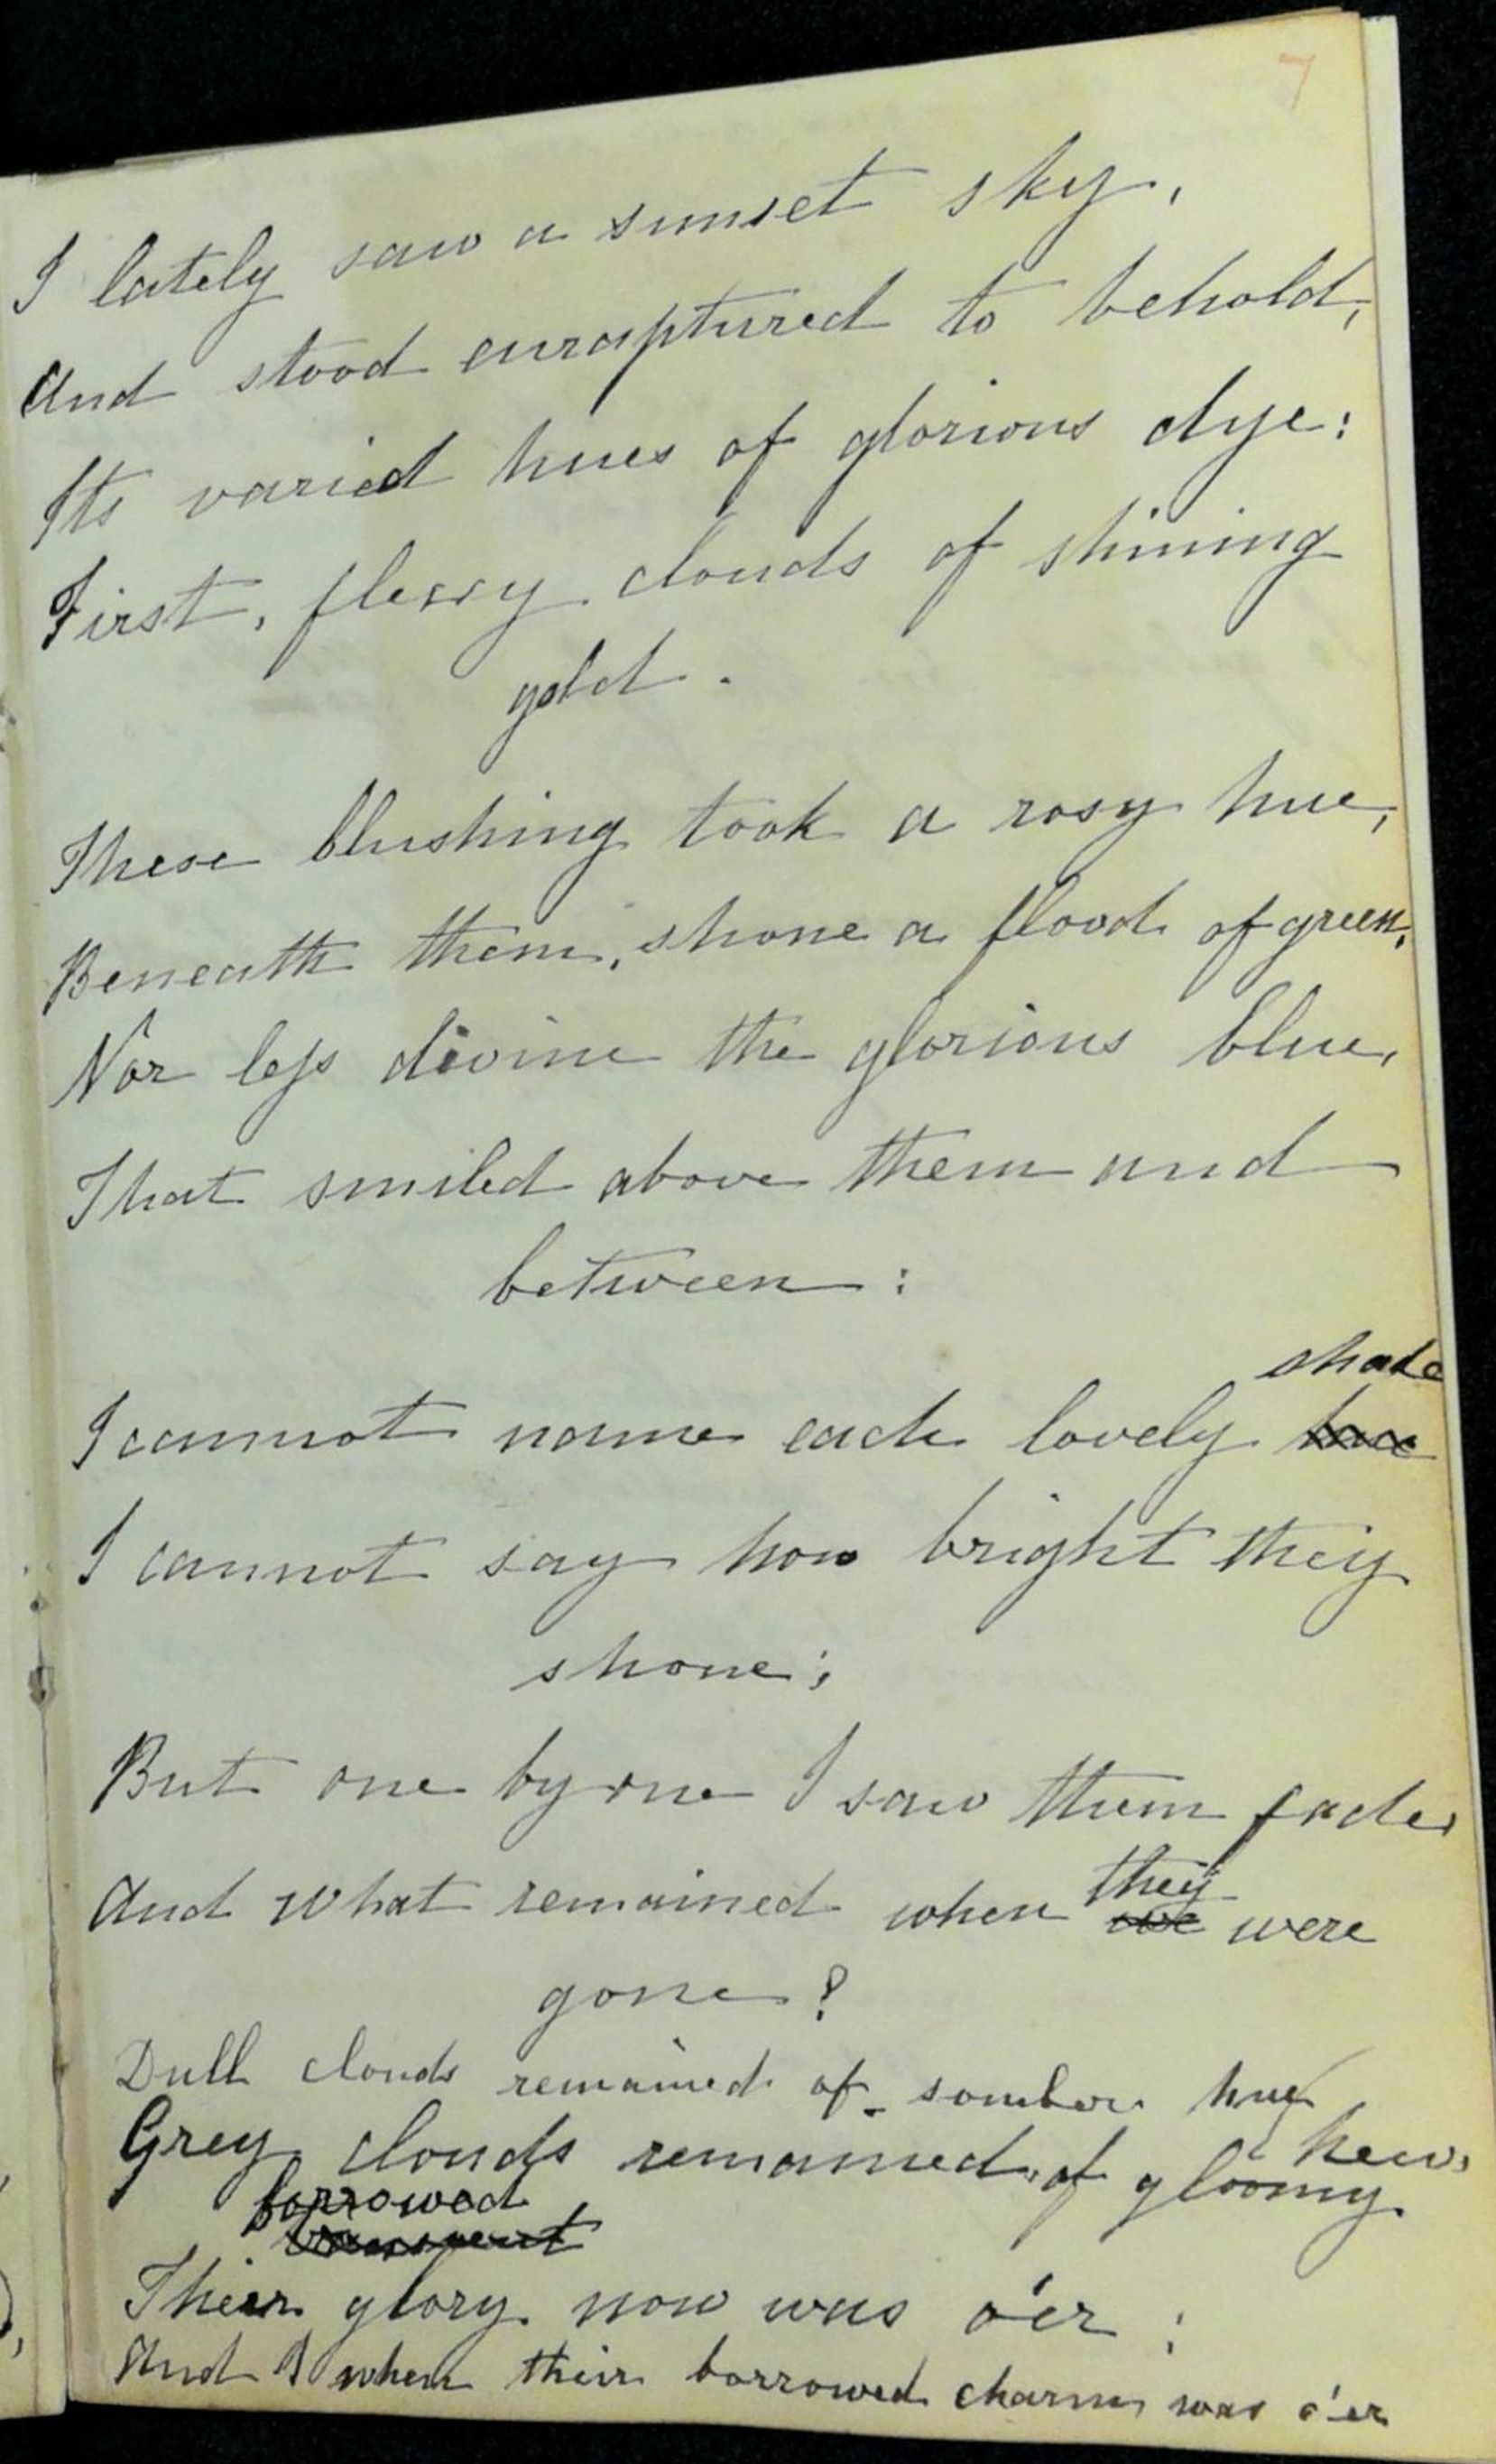 7
I lately saw a sunset sky,
And stood enraptured to behold,
Its varied hues of glorious dye:
First, fleecy clouds of shining
gold.
These blushing took a rosy hue,
Beneath them, shone a flood of green,
Nor less divine the glorious blue,
That smiled above them and
between:
shade
I cannot name each lovely hue
I cannot say how bright they
shone;
But one by one I saw them fade,
they
And what remained when we were
gone?
Dull clouds remained of sombre hue
hew,
Grey clouds remained, of gloomy
borrowed
transient
Their glory now was o'er:
And when their borrowed charm was o'er